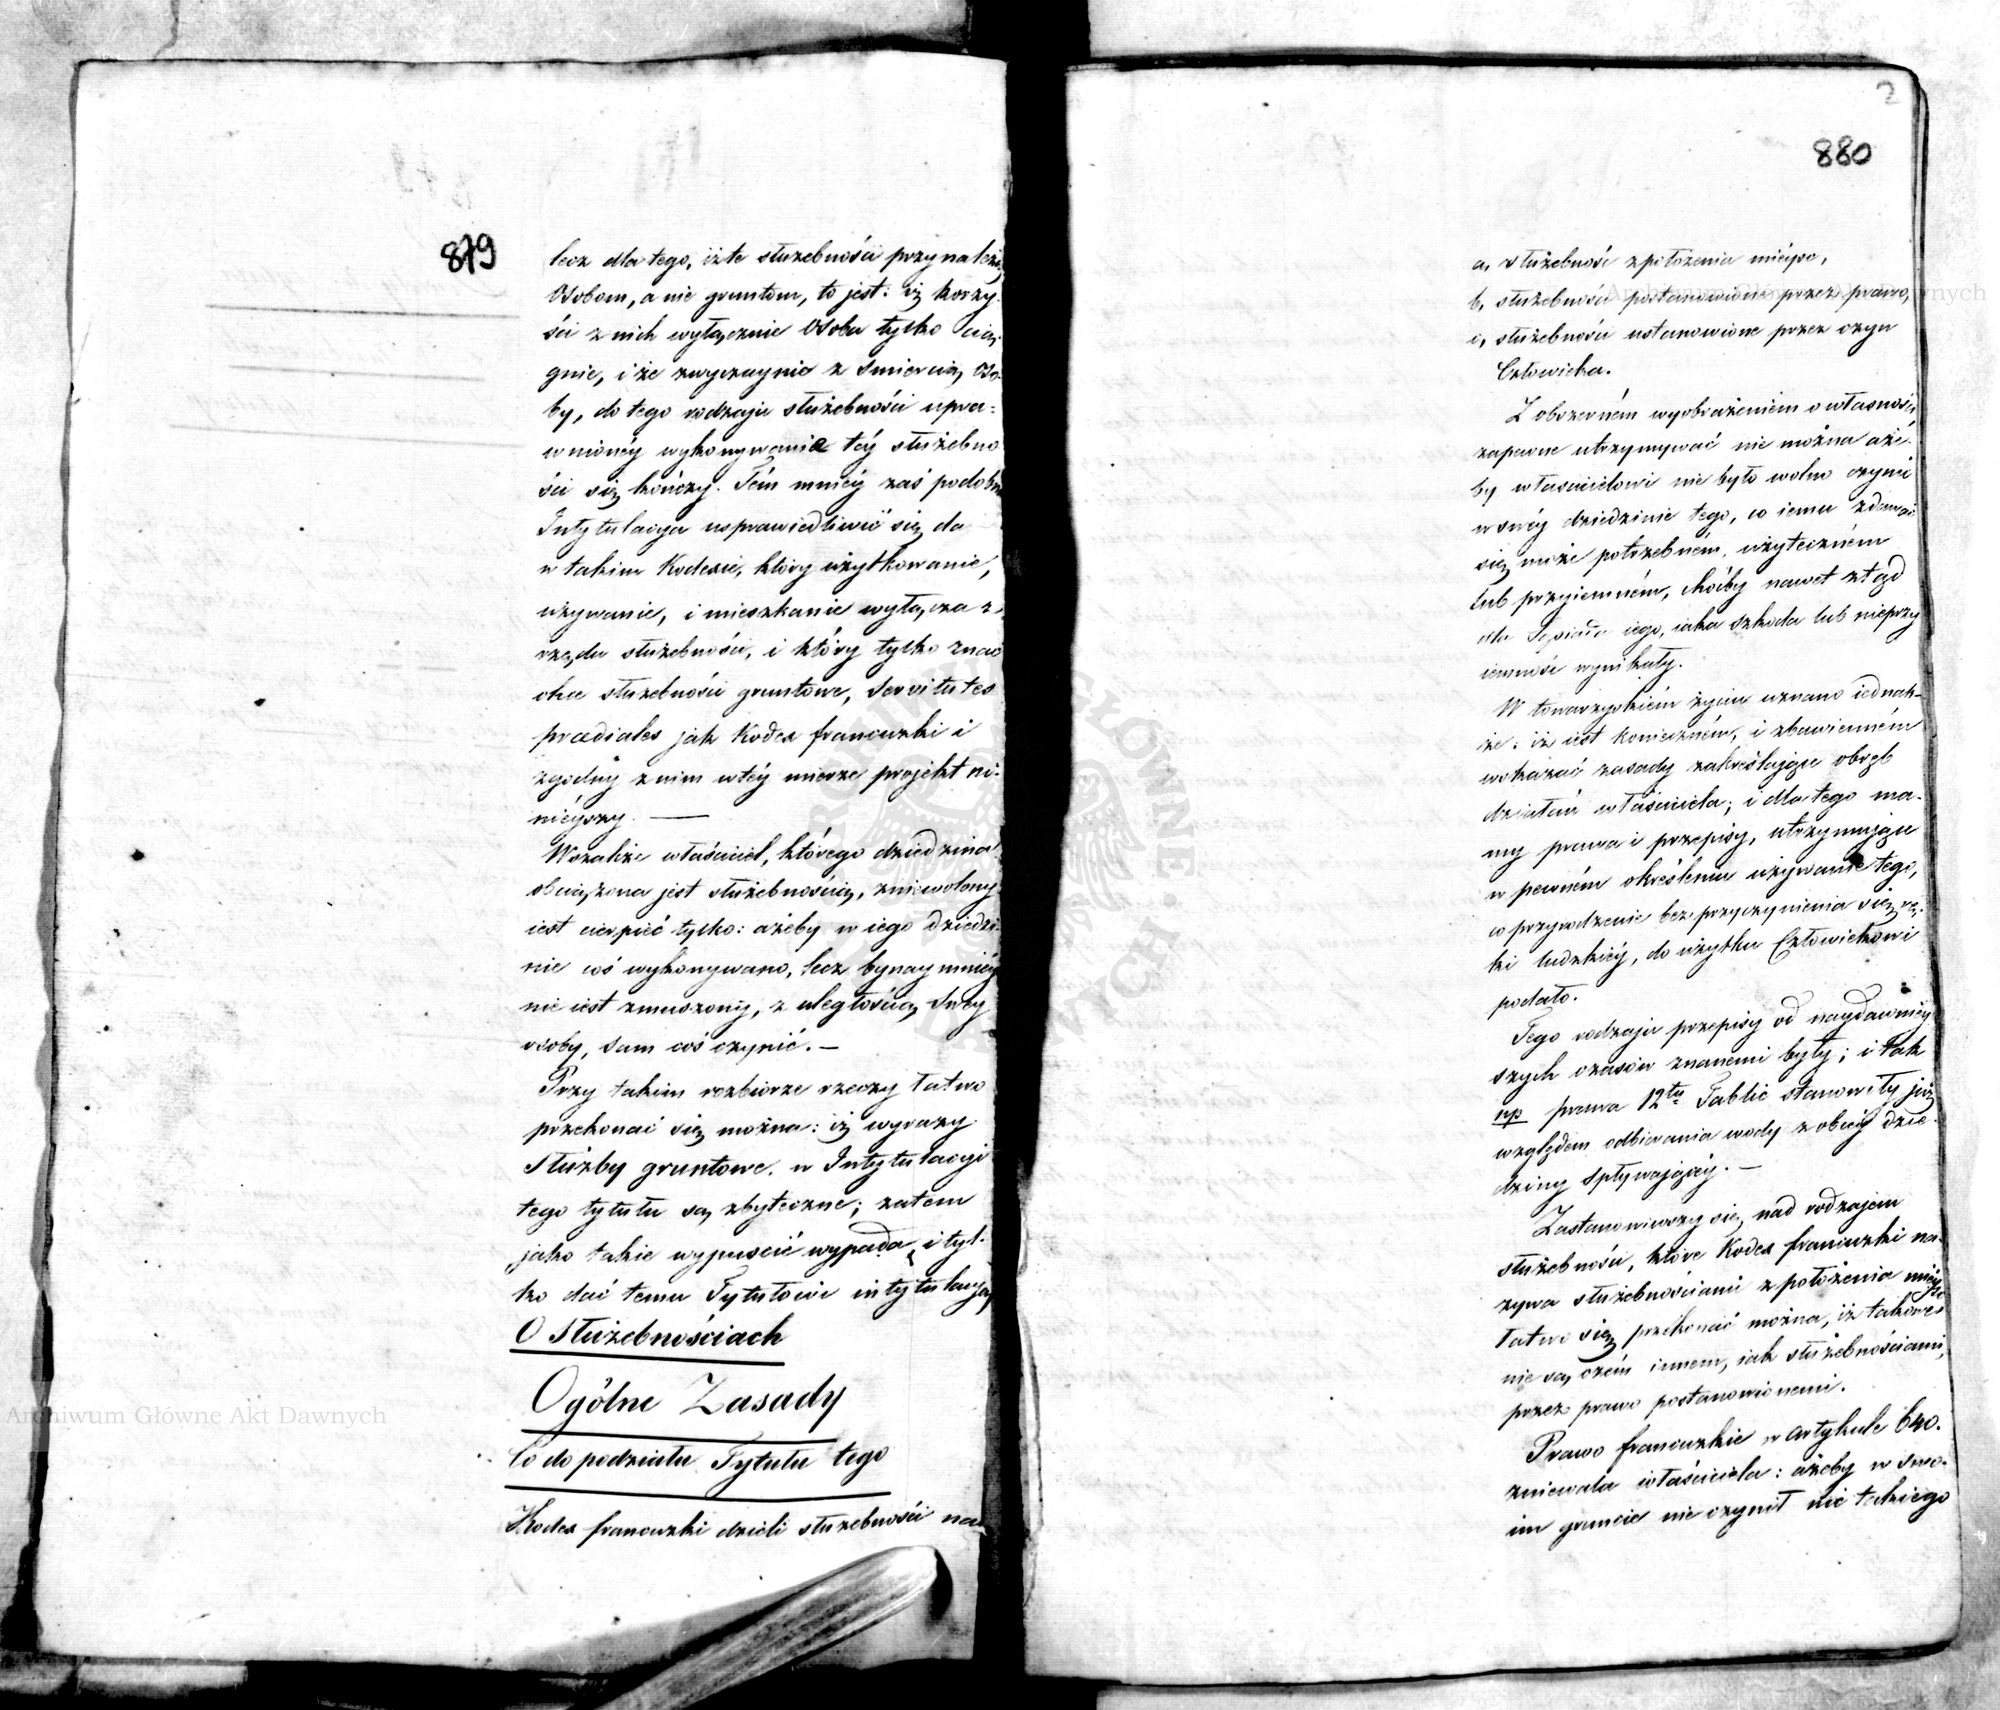 879
lecz dla tego, iż te służebności przynależą
Osobom, a nie gruntom, to jest: iż korzy-
ści z nich wyłącznie Osoba tylko ciąg-
gnie, i że zwyczaynie z śmiercią Oso-
by, do tego rodzaju służebności upra-
wnionéy wykonywanie téy służebno
ści się kończy. Tém mniéy zaś podobna
Intytulacya usprawiedliwić się da
w takim Kodexie, który użytkowanie,
używanie, i mieszkanie wyłącza z
rzędu służebności, i który tylko zna
służebności gruntowe, servitutes
praediales jak Kodex francuzki i
zgodny z nim w téy mierze projekt ni-
niéyszy. —
Wszakże właściciel, którego dziedzina
obciążona jest służebnością, zniewolony
iest cierpieć tylko: ażeby w iego dziedzi-
nie coś wykonywano, lecz bynaymniéy
nie iest zmuszony, z uległością swey
osoby, sam coś czynić. —
Przy takim rozbiorze rzeczy łatwo
przekonać się można: iż wyrazy
Służby gruntowe, w Intytulacyi
tego tytułu są zbyteczne; zatem
jako takie wypuścić wypada, i tyl-
ko dać temu Tytułowi intytulacyą
O Służebnościach
Ogólne Zasady
Co do podziału Tytułu tego
Kodex francuzki dzieli służebności na
2
880
a, służebność z położenia mieysc,
b, służebności postanowione przez prawo,
c, służebności ustanowione przez czyn
Człowieka.
Z obszerném wyobrażeniem o własności
zapewne utrzymywać nie można aże-
by właścicielowi nie było wolno czynić
w swéy dziedzinie tego, co iemu zdawać
się może potrzebném, użyteczném
lub przyiemném, choćby nawet ztąd
dla Sąsiada iego, iaka szkoda lub nieprzy
iemność wynikały.
W towarzyskiém życiu uznano iednak-
że: iż iest konieczném, i zbawienném
wskazać zasady zakreślające obręb
działań właściciela; i dla tego ma-
my prawa i przepisy, utrzymujące
w pewném określeniu używanie tego,
co przyrodzenie bez przyczynienia się rę-
ki ludzkiéy, do użytku Człowiekowi
podało.
Tego rodzaju przepisy od naydawniey
szych czasów znanemi były; i tak
np prawa 12tu Tablic stanowiły już
względem odbierania wody z obcéy dzie-
dziny spływającéy. —
Zastanowiwszy się nad rodzajem
służebności, które Kodex francuzki na-
zywa służebnościami z położenia mieysc
łatwo się przekonać można, iż takowe
nie są czém innem, iak służebnościami,
przez prawo postanowionemi.
Prawo francuzkie w artykule 640.
zniewala właściciela: ażeby w swo-
im gruncie nie czynił nic takiego
Archiwum Główne Akt Dawnych
Archiwum Główne Akt Dawnych